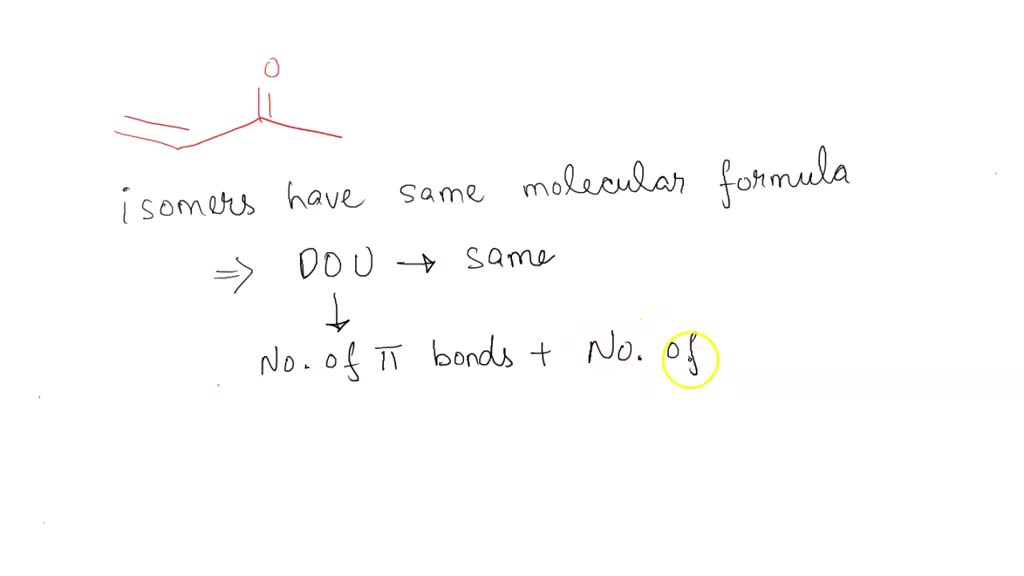 O
isomers have same molecular formula
⇒ DOU → same
↓
No. of π bonds + No. of